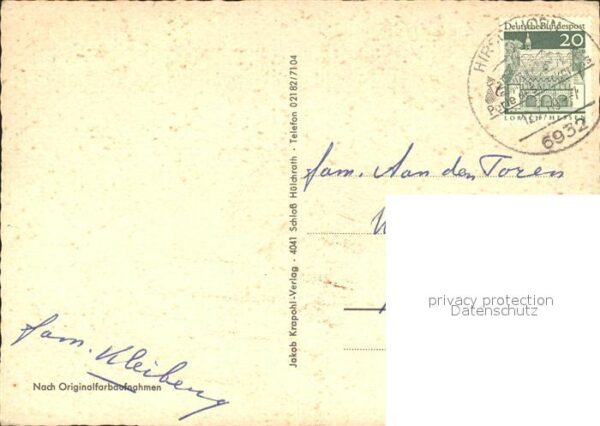 Deutsche Bundespost
20
LORSCH/HESSEN
6932
fam. Aan den Toren
privacy protection
Datenschutz
Jakob Krapohl-Verlag - 4041 Schloß Hülchrath · Telefon 02182/7104
fam. Kleibeng
Nach Originalfarbaufnahmen